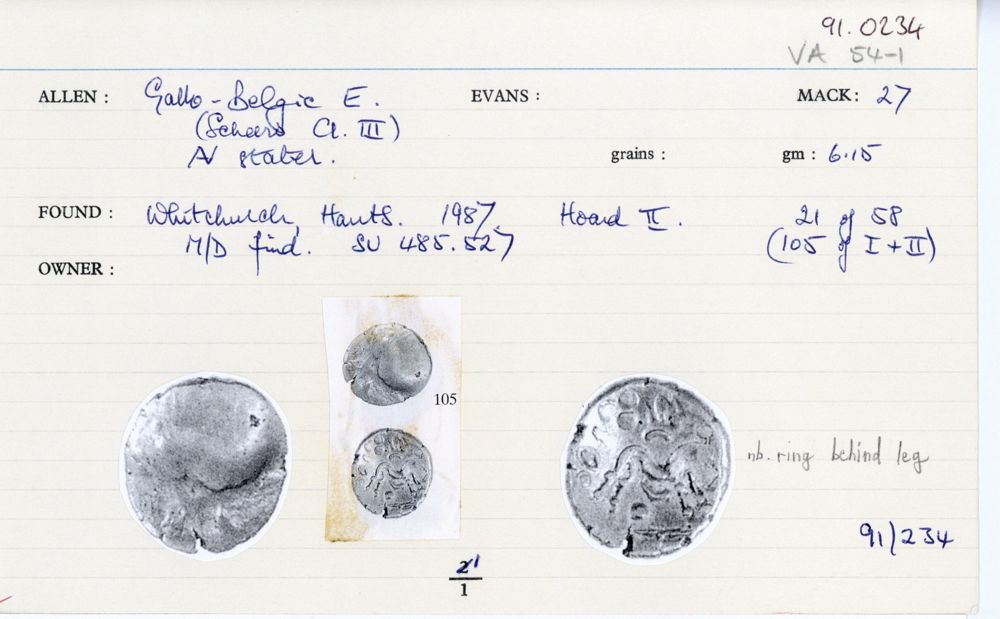 91.0234
VA 54-1
ALLEN : Gallo-Belgic E. EVANS : MACK: 27
(Scheers Cl. III)
AV stater. grains : gm : 6.15
FOUND : Whitchurch, Hants. 1987. Hoard II. 21 of 58
M/D find. SU 485.527 (105 of I + II)
OWNER :
105
nb. ring behind leg
91/234
1